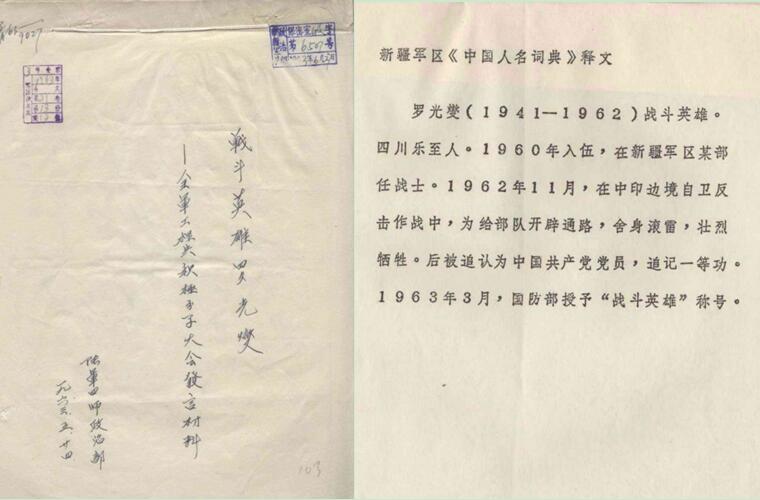 9027
第6507号
战斗英雄罗光燮
陆军四师政治部
一九六三.五.廿四
103
新疆军区《中国人名词典》释文
罗光燮(1941—1962)战斗英雄。
四川乐至人。1960年入伍，在新疆军区某部
任战士。1962年11月，在中印边境自卫反
击作战中，为给部队开辟通路，舍身滚雷，壮烈
牺牲。后被追认为中国共产党党员，追记一等功。
1963年3月，国防部授予“战斗英雄”称号。